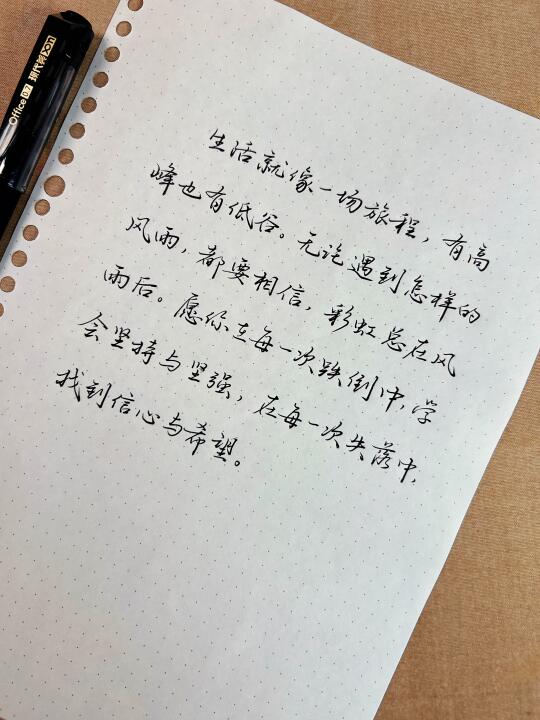 生活就像一场旅程，有高
峰也有低谷。无论遇到怎样的
风雨，都要相信，彩虹总在风
雨后。愿你在每一次跌倒中，学
会坚持与坚强，在每一次失落中，
找到信心与希望。
Office 0.7